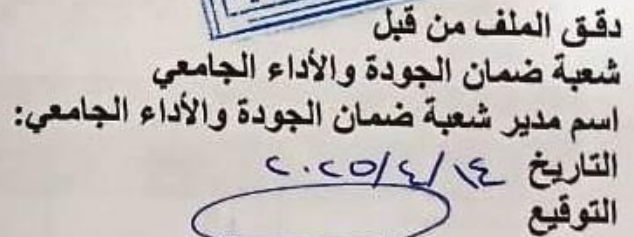 دقق الملف من قبل
شعبة ضمان الجودة والأداء الجامعي
اسم مدير شعبة ضمان الجودة والأداء الجامعي:
التاريخ ١٤/٤/٢٠٢٥
التوقيع